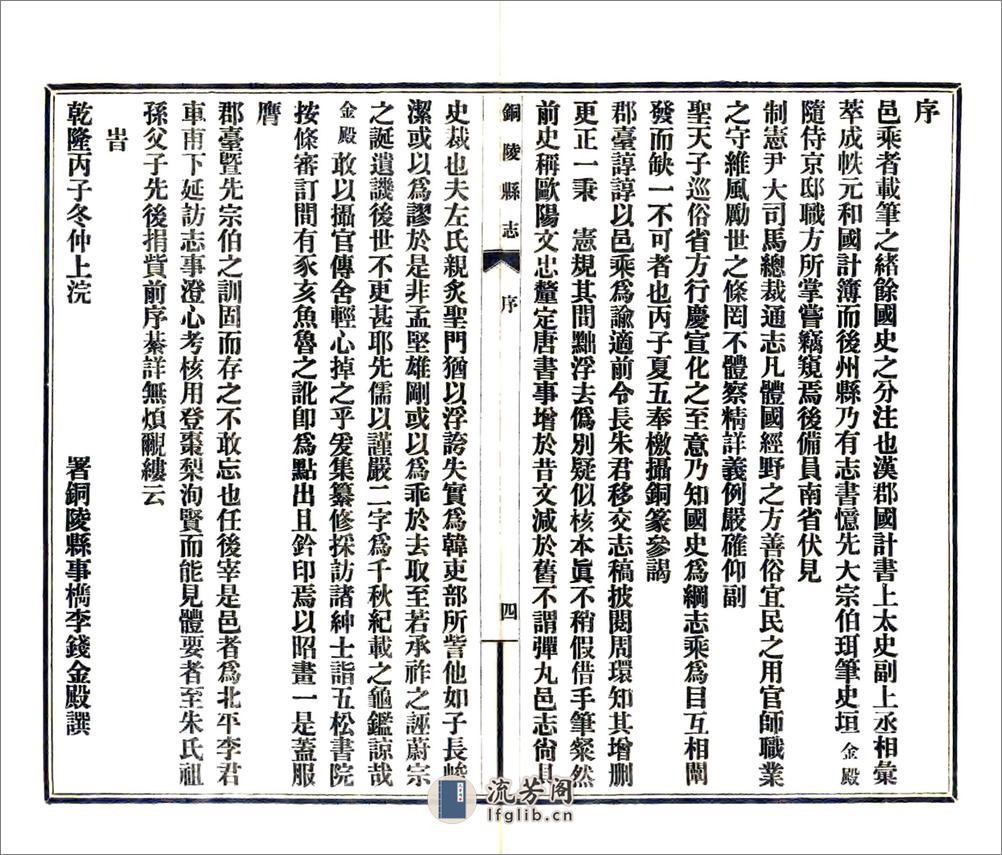 序
邑乘者載筆之緒餘國史之分注也漢郡國計書上太史副上丞相彙
萃成帙元和國計簿而後州縣乃有志書憶先大宗伯珥筆史垣金殿
隨侍京邸職方所掌嘗竊窺焉後備員南省伏見
制憲尹大司馬總裁通志凡體國經野之方善俗宜民之用官師職業
之守維風勵世之條罔不體察精詳義例嚴確仰副
聖天子巡俗省方行慶宣化之至意乃知國史為綱志乘為目互相闡
發而缺一不可者也丙子夏五奉檄攝銅篆參謁
郡臺諄諄以邑乘為諭適前令長朱君移交志稿披閱周環知其增刪
更正一秉 憲規其間黜浮去偽別疑似核本眞不稍假借手筆粲然
前史稱歐陽文忠釐定唐書事增於昔文減於舊不謂彈丸邑志尙具
銅陵縣志
序
四
史裁也夫左氏親炙聖門猶以浮誇失實為韓吏部所訾他如子長峻
潔或以為謬於是非孟堅雄剛或以為乖於去取至若承祚之誣蔚宗
之誕遺譏後世不更甚耶先儒以謹嚴二字為千秋紀載之龜鑑諒哉
金殿敢以攝官傳舍輕心掉之乎爰集纂修採訪諸紳士詣五松書院
按條審訂間有豕亥魚魯之訛卽為點出且鈐印焉以昭畫一是蓋服
膺
郡臺暨先宗伯之訓固而存之不敢忘也任後宰是邑者為北平李君
車甫下延訪志事澄心考核用登棗梨洵賢而能見體要者至朱氏祖
孫父子先後捐貲前序綦詳無煩覼縷云
旹
乾隆丙子冬仲上浣
署銅陵縣事檇李錢金殿譔
流芳阁
lfglib.cn